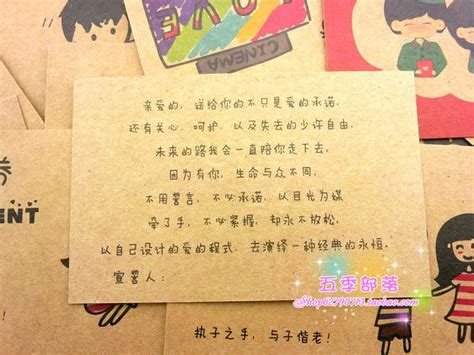 LOVE
CINEMA
券
ENT
亲爱的，送给你的不只是爱的承诺，
还有关心，呵护，以及失去的少许自由，
未来的路我会一直陪你走下去，
因为有你，生命与众不同，
不用誓言，不必承诺，以目光为媒
牵了手，不必紧握，却永不放松，
以自己设计的爱的程式，去演绎一种经典的永恒。
宣誓人：
五季部落
执子之手，与子偕老！